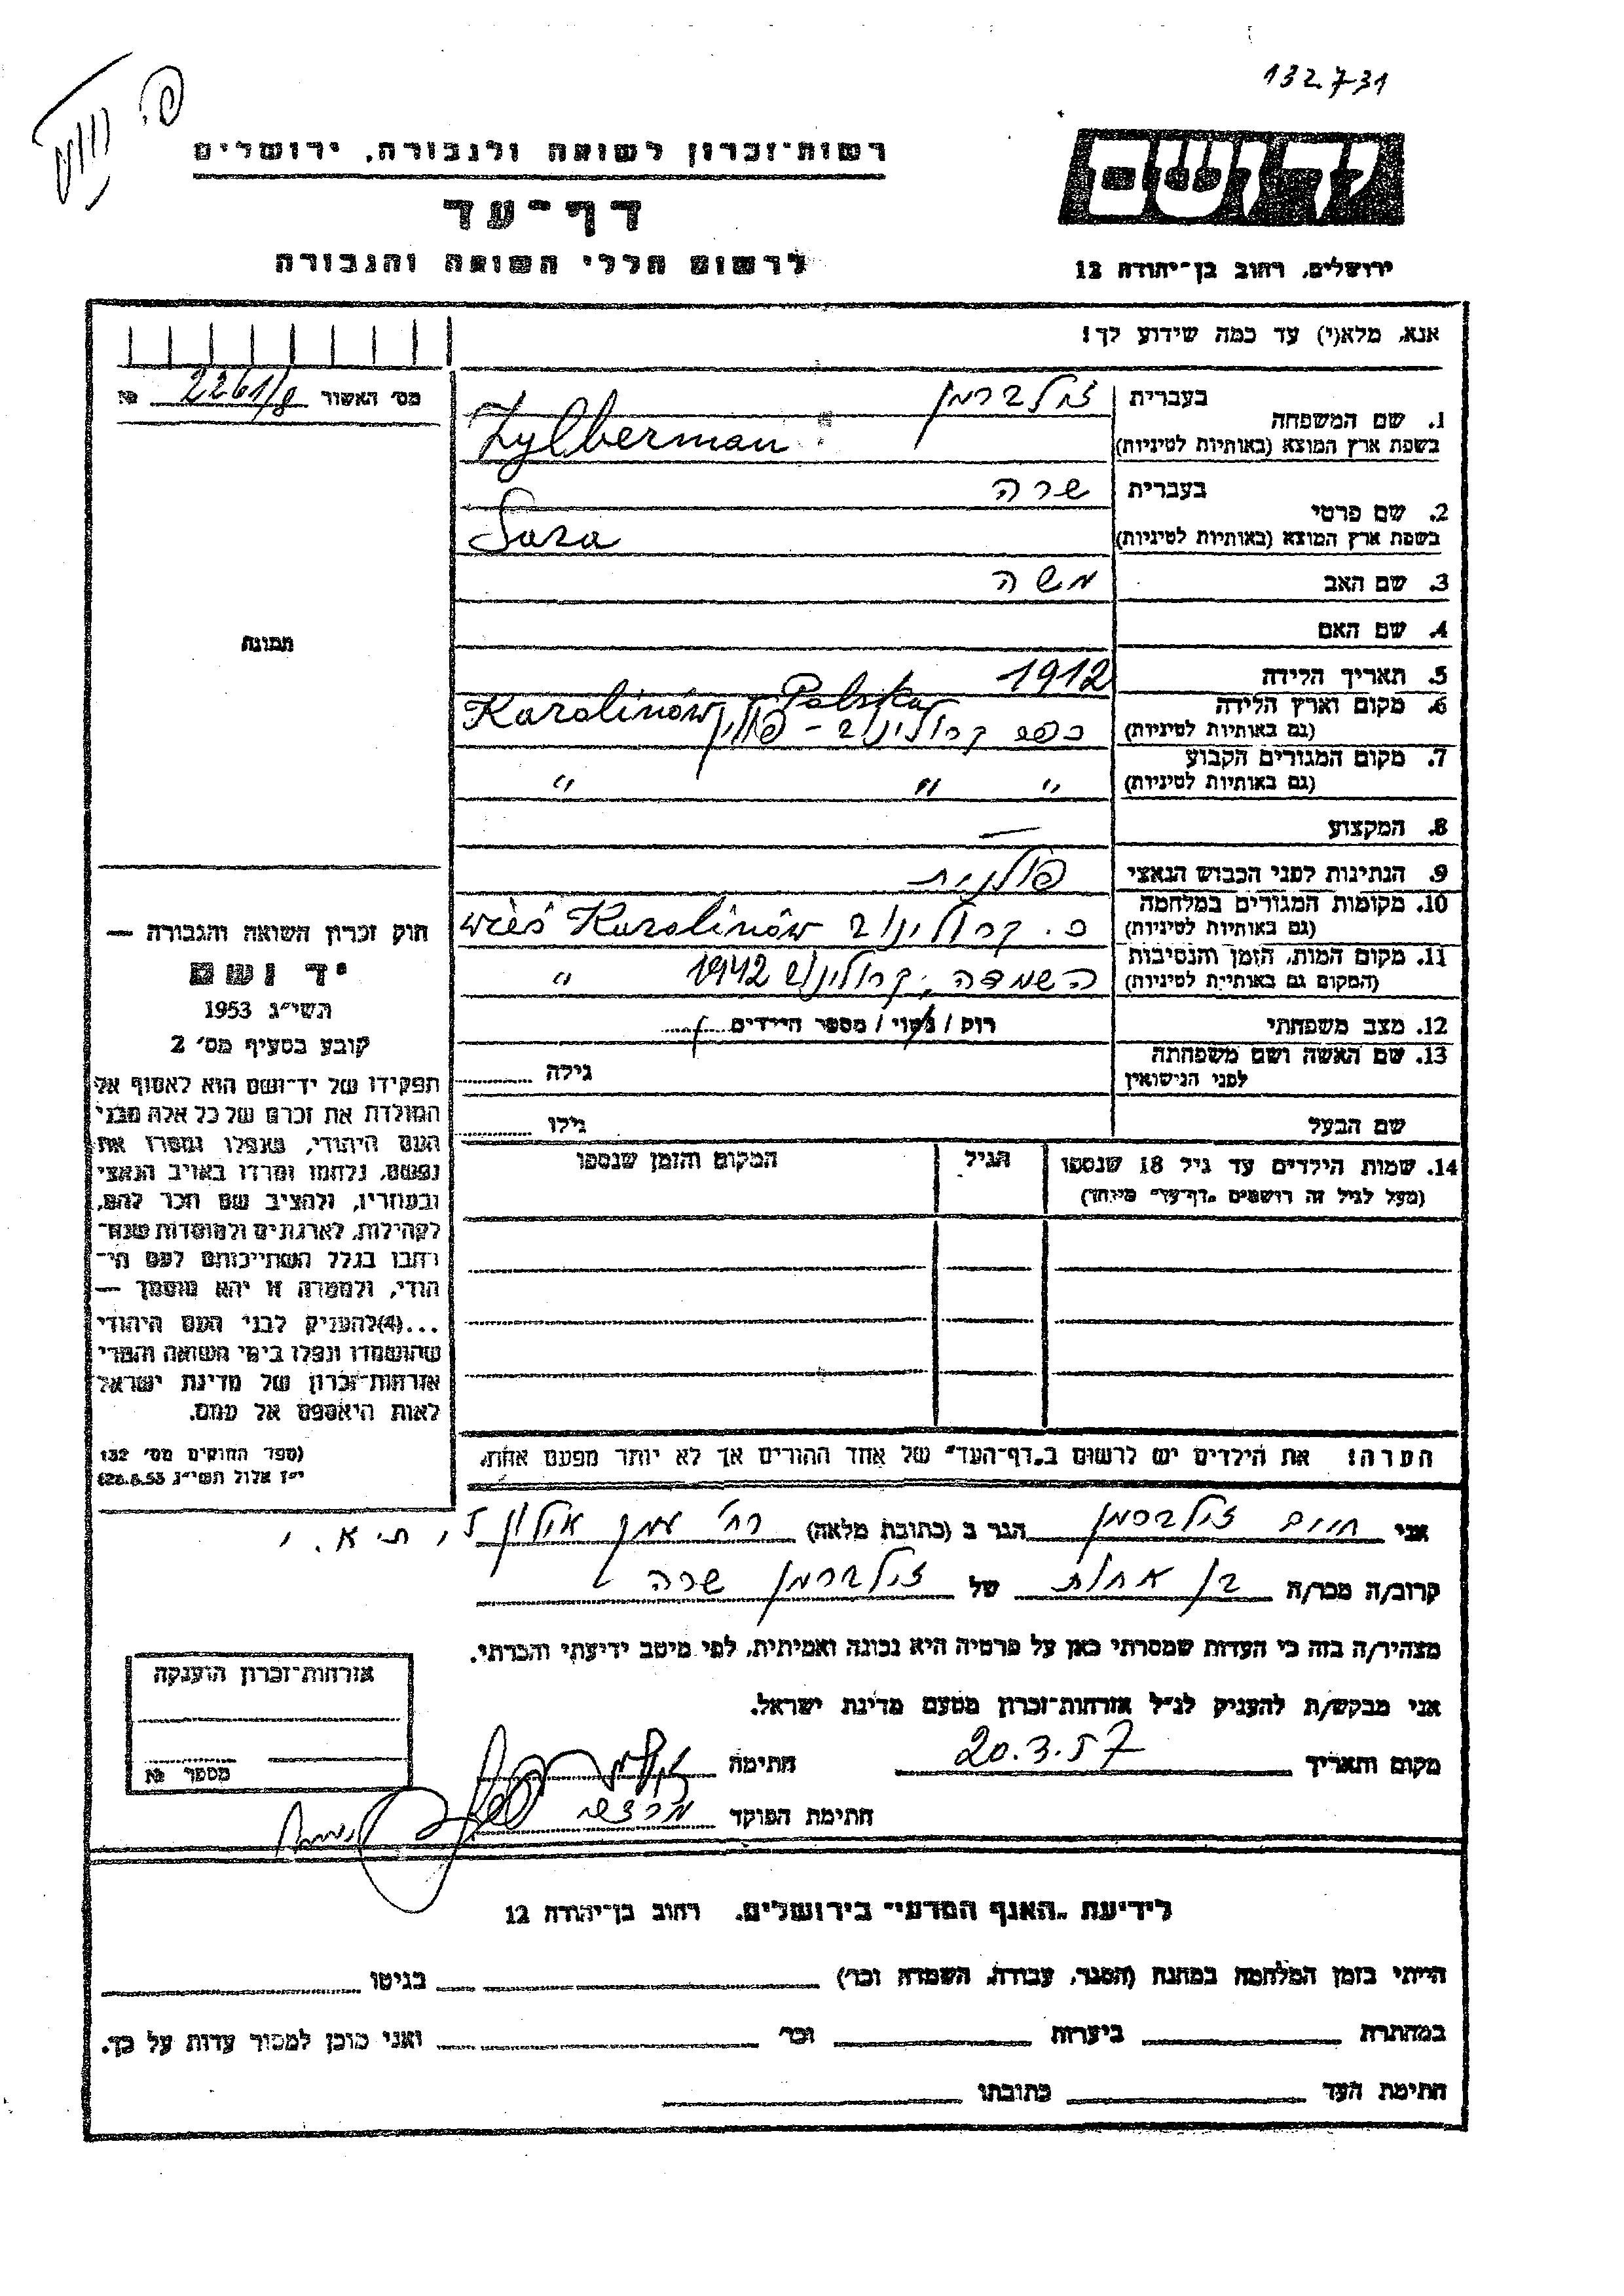 132.731
יד ושם
רשות־זכרון לשואה ולגבורה, ירושלים
דף־עד
ירושלים, רחוב בן־יהודה 12
לרשום חללי השואה והגבורה
אנא, מלא(י) עד כמה שידוע לך!
מס׳ האשור 2261/8 №
1. שם המשפחה
בעברית זילברמן
בשפת ארץ המוצא (באותיות לטיניות) Zylberman
2. שם פרטי
בעברית שרה
בשפת ארץ המוצא (באותיות לטיניות) Sara
3. שם האב משה
4. שם האם
5. תאריך הלידה 1912
6. מקום וארץ הלידה Karolinów Polska
(גם באותיות לטיניות) כפר קרולינוב - פולין
7. מקום המגורים הקבוע
(גם באותיות לטיניות) " " "
8. המקצוע —
9. הנתינות לפני הכבוש הנאצי פולנית
10. מקומות המגורים במלחמה
(גם באותיות לטיניות) כ. קרולינוב wieś Karolinów
11. מקום המות, הזמן והנסיבות
(המקום גם באותיות לטיניות) השמדה, קרולינוב 1942 "
12. מצב משפחתי רווק / נשוי / מספר הילדים
13. שם האשה ושם משפחתה
לפני הנישואין גילה
שם הבעל גילו
14. שמות הילדים עד גיל 18 שנספו הגיל המקום והזמן שנספו
(מעל לגיל זה רושמים "דף־עד" מיוחד)
הערה: את הילדים יש לרשום ב"דף־העד" של אחד ההורים אך לא יותר מפעם אחת.
תמונה
חוק זכרון השואה והגבורה —
יד ושם
תשי״ג 1953
קובע בסעיף מס׳ 2
תפקידו של יד־ושם הוא לאסוף אל
המולדת את זכרם של כל אלה מבני
העם היהודי, שנפלו ומסרו את
נפשם, נלחמו ומרדו באויב הנאצי
ובעוזריו, ולהציב שם וזכר להם,
לקהילות, לארגונים ולמוסדות שנח־
רבו בגלל השתייכותם לעם הי־
הודי, ולמטרה זו יהא מוסמך —
...(4)להעניק לבני העם היהודי
שהושמדו ונפלו בימי השואה והמרי
אזרחות־זכרון של מדינת ישראל
לאות היאספם אל עמם.
(ספר החוקים מס׳ 132
י״ז אלול תשי״ג 28.8.53)
אני חיים זילברמן הגר ב (כתובת מלאה) רח׳ עמק אילון 7, ת״א.
קרוב/ה מכר/ה בן אחות של זילברמן שרה
מצהיר/ה בזה כי העדות שמסרתי כאן על פרטיה היא נכונה ואמיתית, לפי מיטב ידיעתי והכרתי.
אני מבקש/ת להעניק לנ״ל אזרחות־זכרון מטעם מדינת ישראל.
מקום ותאריך 20.3.57 חתימה
חתימת הפוקד
אזרחות־זכרון הוענקה
מספר №
לידיעת "האגף המדעי" בירושלים, רחוב בן־יהודה 12
הייתי בזמן המלחמה במחנה (הסגר, עבודה, השמדה וכו׳) בגיטו
במחתרת ביערות וכו׳ ואני מוכן למסור עדות על כך.
חתימת העד כתובתו